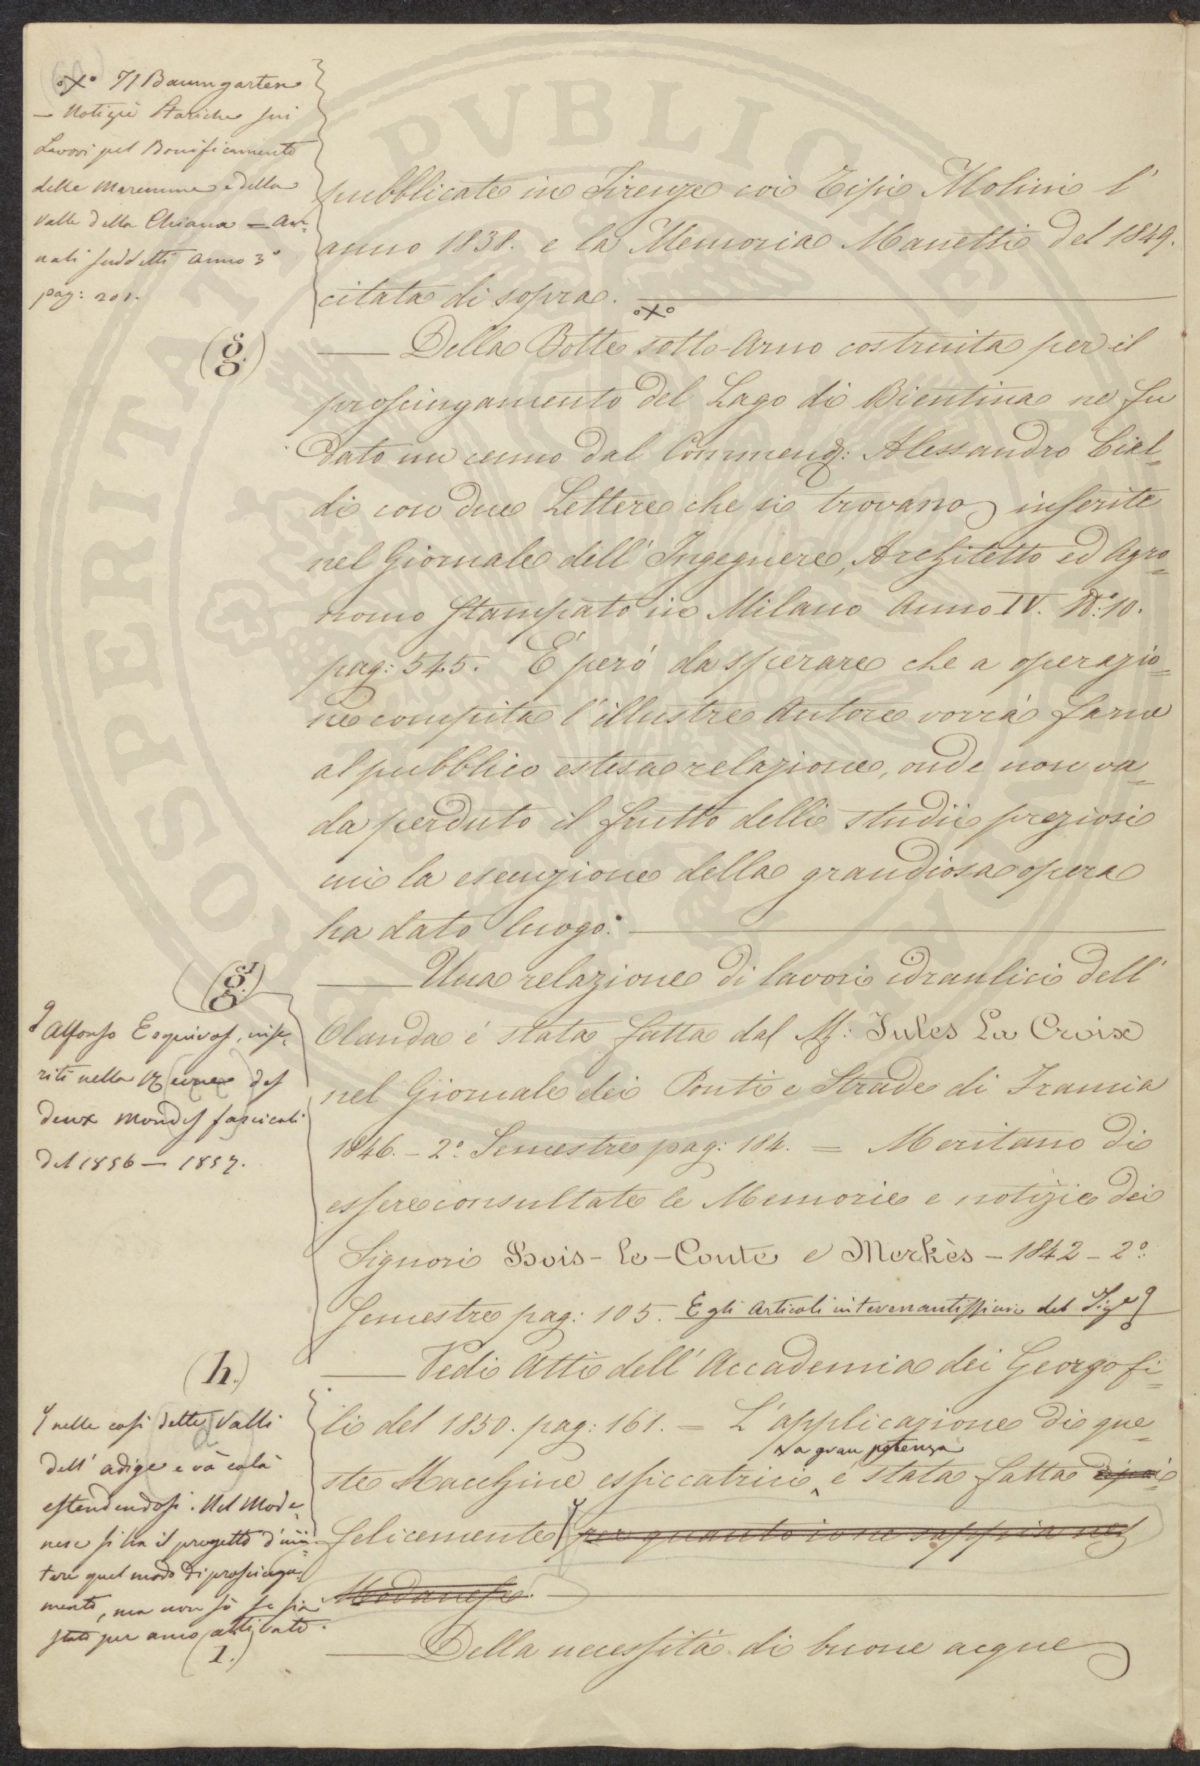 °x° 7/ Baumgarten
— Notizie Storiche sui
Lavori pel Bonificamento
delle Maremme e della
Valle della Chiana — An-
nali suddetti Anno 3°
pag: 201.
pubblicate in Firenze coi Tipi Molini l'
anno 1838. e la Memoria Manetti del 1849.
citata di sopra.
°x°
(g.)
Della Botte sotto-Arno costruita per il
prosciugamento del Lago di Bientina ne fu
dato un cenno dal Commend: Alessandro Cial-
di con due Lettere che si trovano inserite
nel Giornale dell' Ingegnere, Architetto ed Agro-
nomo stampato in Milano Anno IV. N°: 10.
pag: 545. É peró da sperare che a operazio-
ne compita l'illustre Autore vorrá farne
al pubblico estesa relazione, onde non va-
da perduto il frutto delli studii preziosi
cui la esecuzione della grandiosa opera
ha dato luogo.
(g¹.)
Una relazione di lavori idraulici dell'
Olanda é stata fatta dal Mr: Jules La Croix
nel Giornale dei Ponti e Strade di Francia
1846. – 2°. Semestre pag: 184. = Meritano di
essere consultate le Memorie e notizie dei
Signori Bois-le-Conte e Merkès – 1842 – 2°.
Semestre pag: 105. E gli Articoli interessantissimi del Sigr
Alfonso Esquiros, inse-
riti nella Revue des
deux Mondes fascicoli
del 1856 — 1857.
(h.)
Vedi Atti dell' Accademia dei Georgofi-
li del 1850. pag: 161. = L'applicazione di que-
ste Macchine essiccatrici, a gran potenza é stata fatta
felicemente per quanto io ne sappia nel
Modanese.
nelle cosi dette Valli
dell' adige e và colà
estendendosi. Nel Mode-
nese si ha il progetto d'imi-
tare quel modo di prosciuga-
mento, ma non sò se sia
stato per anco attivato.
(1.)
Della necessità di buone acque